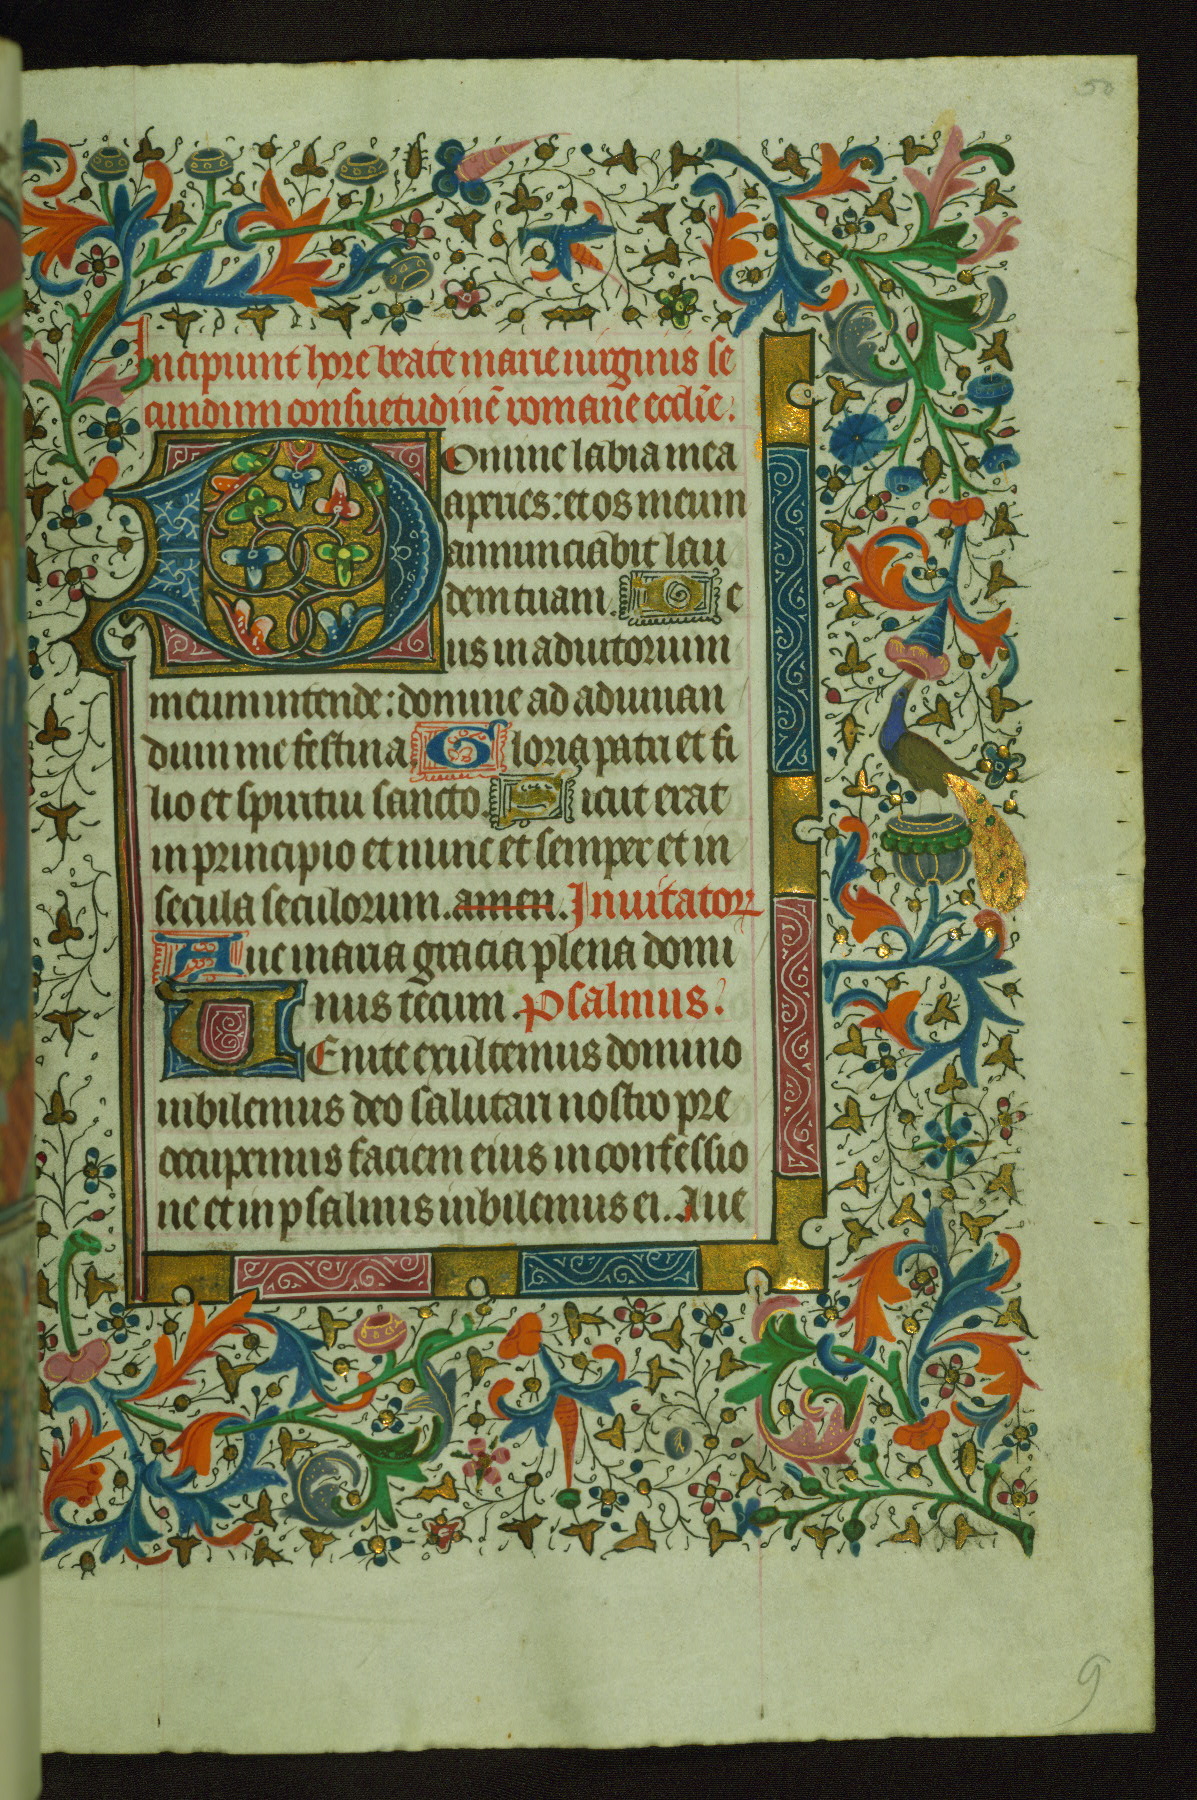 50
Incipiunt hore beate marie uirginis se
cundum consuetudinē romane eccl̄ie.
Domine labia mea
aperies: et os meum
annunciabit lau
dem tuam. De
us in adiutorium
meum intende: domine ad adiuuan
dum me festina Gloria patri et fi
lio et spiritui sancto. Sicut erat
in principio et nunc et semper et in
secula seculorum. amen. Inuitator
Aue maria gracia plena domi
nus tecum. Psalmus.
UEnite exultemus domino
iubilemus deo salutari nostro pre
occupemus faciem eius in confessio
ne et in psalmis iubilemus ei. Aue
9